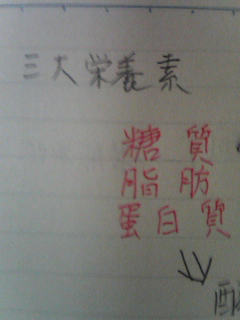 三大栄養素
糖質
脂肪
蛋白質